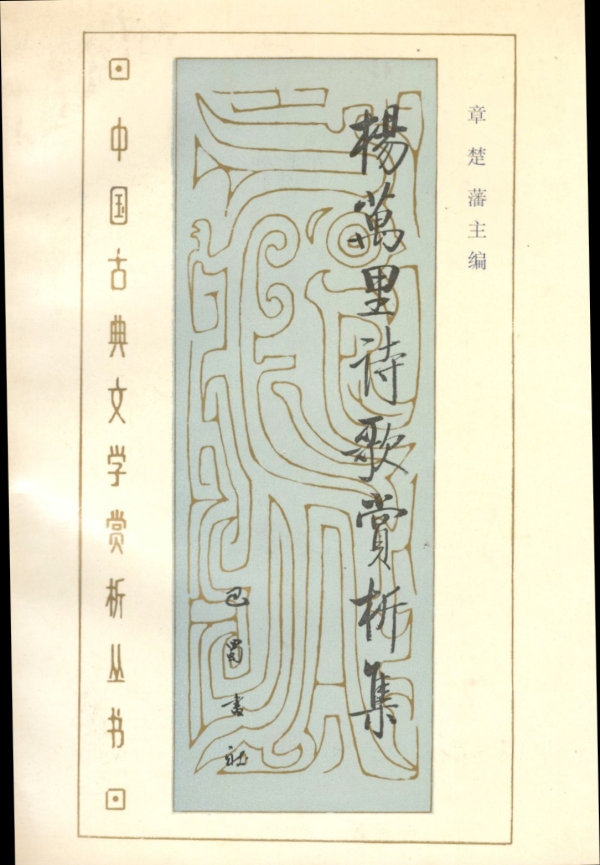 章楚藩主编
楊萬里詩歌賞析集
巴蜀書社
中国古典文学赏析丛书